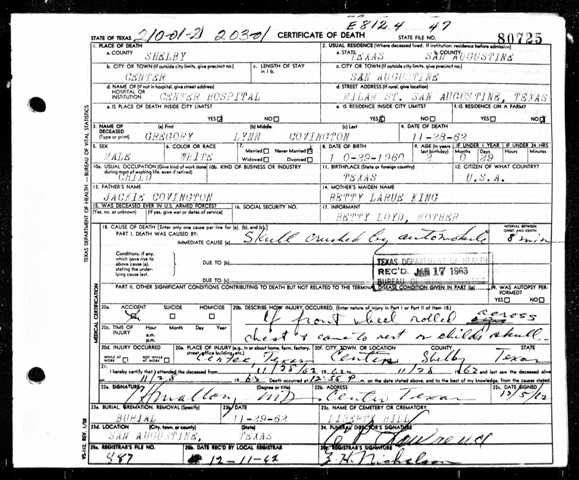 E812.4 47
STATE OF TEXAS 210-01-2 203-01 CERTIFICATE OF DEATH 80725
1. PLACE OF DEATH 2. USUAL RESIDENCE (Where deceased lived. If institution: residence before admission)
a. COUNTY a. STATE b. COUNTY
SHELBY TEXAS SAN AUGUSTINE
b. CITY OR TOWN (If outside city limits, give precinct no.) c. LENGTH OF STAY in 1 b. c. CITY OR TOWN (If outside city limits, give precinct no.)
CENTER SAN AUGUSTINE
d. NAME OF (If not in hospital, give street address) HOSPITAL OR INSTITUTION d. STREET ADDRESS (If rural, give location)
CENTER HOSPITAL MILAM ST. SAN AUGUSTINE, TEXAS
e. IS PLACE OF DEATH INSIDE CITY LIMITS? e. IS RESIDENCE INSIDE CITY LIMITS? f. IS RESIDENCE ON A FARM?
YES NO YES NO YES NO
3. NAME OF DECEASED (Type or print) (a) First (b) Middle (c) Last 4. DATE OF DEATH
GREGORY LYNN COVINGTON 11-28-62
5. SEX 6. COLOR OR RACE 7. Married Never Married Widowed Divorced 8. DATE OF BIRTH 9. AGE (In years IF UNDER 1 YEAR IF UNDER 24 HRS.
MALE WHITE 10-29-1960 2 0 29
10a. USUAL OCCUPATION (Give kind of work done during most of working life, even if retired) 10b. KIND OF BUSINESS OR INDUSTRY 11. BIRTHPLACE (State or foreign country) 12. CITIZEN OF WHAT COUNTRY?
CHILD TEXAS U.S.A.
13. FATHER'S NAME 14. MOTHER'S MAIDEN NAME
JACKIE COVINGTON BETTY LARUE KING
15. WAS DECEASED EVER IN U.S. ARMED FORCES? 16. SOCIAL SECURITY NO. 17. INFORMANT
(Yes, no, or unknown) (If yes, give war or dates of service) BETTY LOYD, MOTHER
18. CAUSE OF DEATH [Enter only one cause per line for (a), (b), and (c).] INTERVAL BETWEEN ONSET AND DEATH
PART I. DEATH WAS CAUSED BY:
IMMEDIATE CAUSE (a) Skull crushed by automobile 8 min
Conditions, if any, which gave rise to above cause (a), stating the underlying cause last.
DUE TO (b)
DUE TO (c)
TEXAS DEPARTMENT OF HEALTH
REC'D JAN 17 1963
BUREAU OF
PART II. OTHER SIGNIFICANT CONDITIONS CONTRIBUTING TO DEATH BUT NOT RELATED TO THE TERMINAL DISEASE CONDITION GIVEN IN PART I(a) 19. WAS AUTOPSY PERFORMED?
YES NO
20a. ACCIDENT SUICIDE HOMICIDE 20b. DESCRIBE HOW INJURY OCCURRED. (Enter nature of injury in Part I or Part II of item 18.)
front wheel rolled across
20c. TIME OF INJURY Hour Month Day Year a.m. p.m. chest & came to rest on childs skull.
20d. INJURY OCCURRED WHILE AT WORK NOT WHILE AT WORK 20e. PLACE OF INJURY (e.g., in or about home, farm, factory, street, office building, etc.) 20f. CITY, TOWN, OR LOCATION COUNTY STATE
Center Texas Center Shelby Texas
21. I hereby certify that I attended the deceased from 11/28/62 11/28 1962 and last saw the deceased alive
11/28 Death occurred at m. on the date stated above, and to the best of my knowledge, from the causes stated.
22a. SIGNATURE (Degree or title) 22b. ADDRESS 22c. DATE SIGNED
MD Center Texas 12/5/62
23a. BURIAL, CREMATION, REMOVAL (Specify) 23b. DATE 23c. NAME OF CEMETERY OR CREMATORY
BURIAL 11-29-62 LIBERTY HILL
23d. LOCATION (City, town, or county) (State) 24. FUNERAL DIRECTOR'S SIGNATURE
SAN AUGUSTINE, TEXAS
25a. REGISTRAR'S FILE NO. 25b. DATE REC'D BY LOCAL REGISTRAR 25c. REGISTRAR'S SIGNATURE
487 12-11-62 Z. H. Nicholson
TEXAS DEPARTMENT OF HEALTH—BUREAU OF VITAL STATISTICS
MEDICAL CERTIFICATION